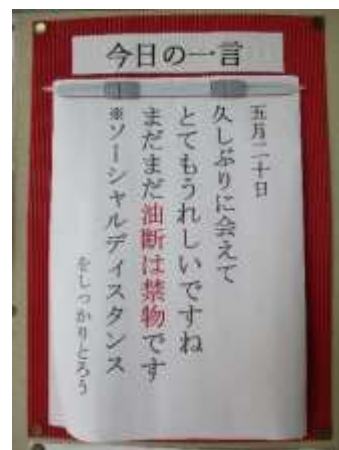 今日の一言
五月二十日
久しぶりに会えて
とてもうれしいですね
まだまだ油断は禁物です
※ソーシャルディスタンス
をしっかりとろう